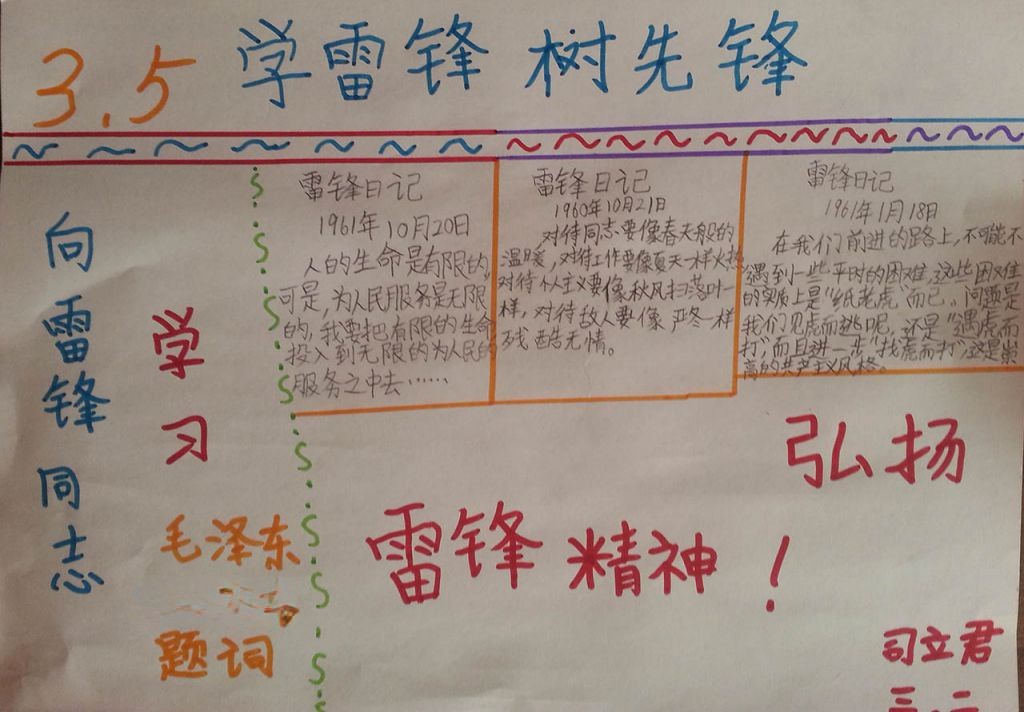 3.5 学雷锋 树先锋
向雷锋同志
学习
毛泽东
题词
雷锋日记
1961年10月20日
人的生命是有限的,
可是,为人民服务是无限
的,我要把有限的生命
投入到无限的为人民的
服务之中去……
雷锋日记
1960年10月21日
对待同志要像春天般的
温暖,对待工作要像夏天一样火热
对待个人主义要像秋风扫落叶一
样,对待敌人要像严冬一样
残酷无情。
雷锋日记
1961年1月18日
在我们前进的路上,不可能不
遇到一些平时的困难,这些困难
的实质上是“纸老虎”而已,问题是
我们见虎而逃呢,还是“遇虎而
打”,而且进一步“找虎而打”,这是崇
高的共产主义风格。
弘扬
雷锋精神!
司立君
三.二